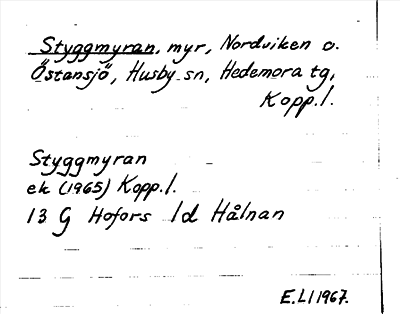 Styggmyran, myr, Nordviken o.
Östansjö, Husby sn, Hedemora tg,
Kopp.l.
Styggmyran
ek (1965) Kopp.l.
13 G Hofors 1d Hålnan
E.Ll 1967.